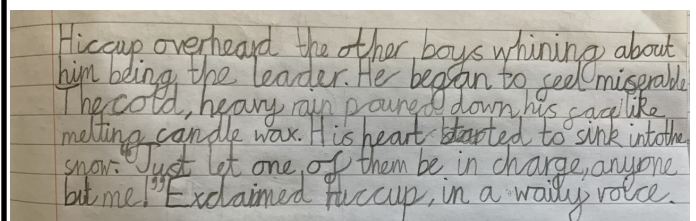 Hiccup overheard the other boys whining about
him being the leader. He began to feel miserable
The cold, heavy rain poured down his face like
melting candle wax. His heart started to sink into the
snow. "Just let one of them be in charge, anyone
but me!" Exclaimed Hiccup, in a waily voice.